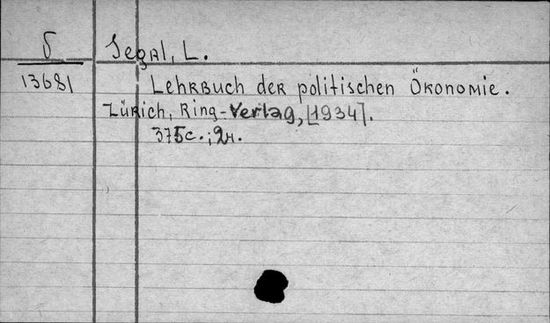 Б
13681
Segal, L.
Lehrbuch der politischen Ökonomie.
Zürich, Ring-Verlag, [1934].
375с.; 2н.